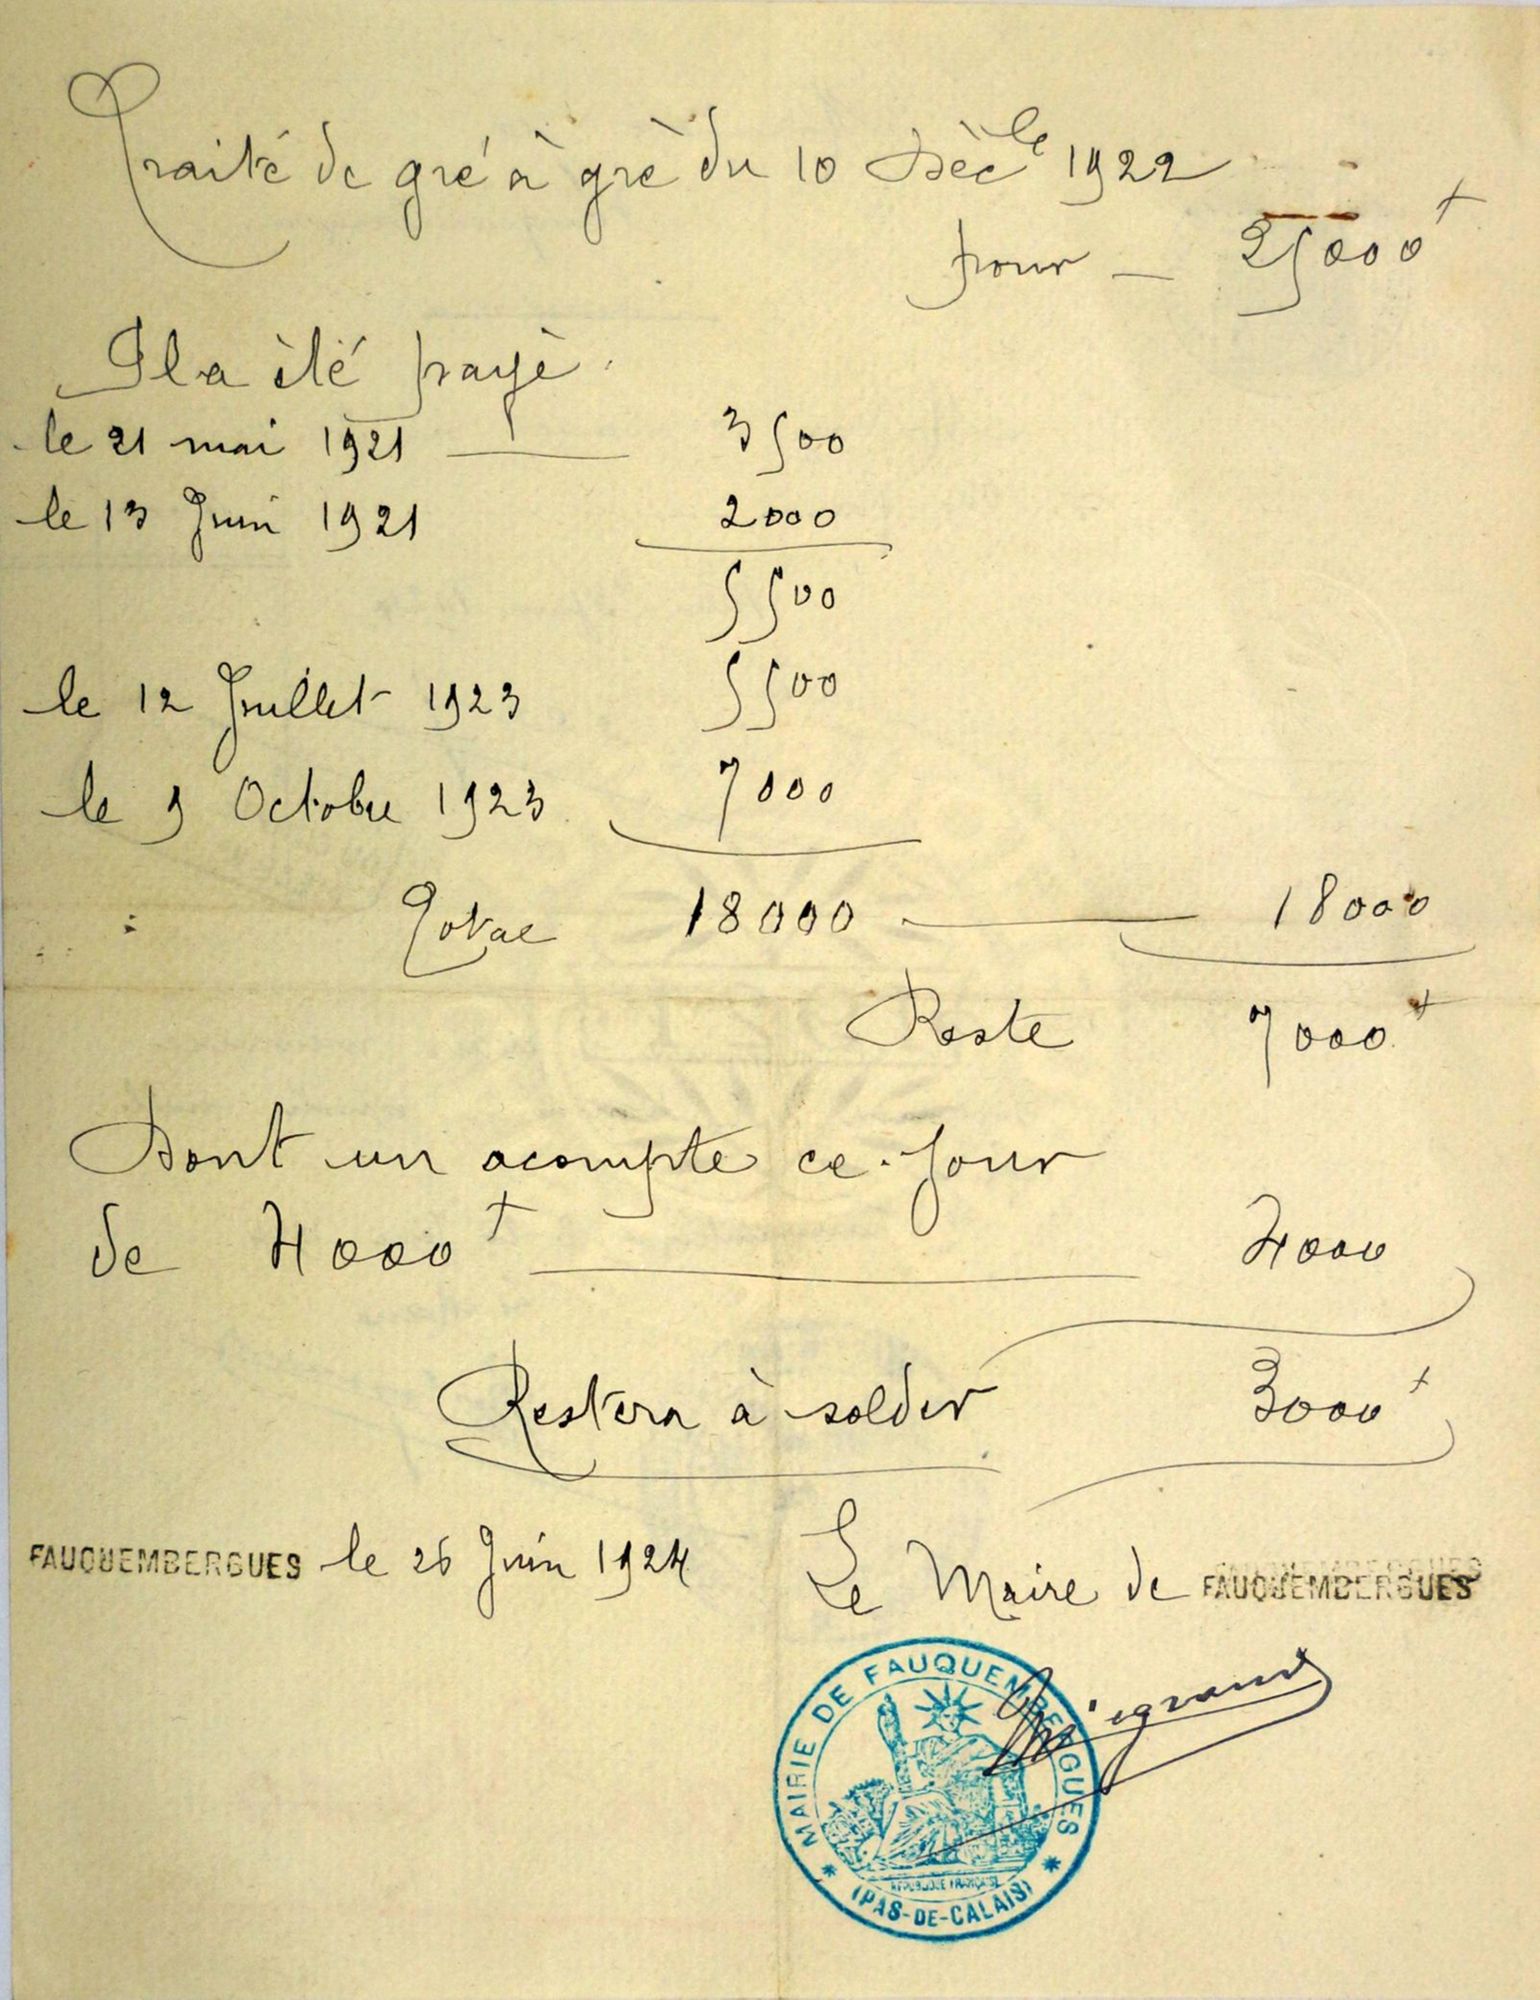 Traité de gré à grè du 10 Dèc^le 1922
pour — 25000 f
Il a èté payè
le 21 mai 1921 — 3500
le 13 Juin 1921 2000
5500
le 12 Juillet 1923 5500
le 9 Octobre 1923 7000
Total 18000 — 18000
Reste 7000 f
Dont un acompte ce jour
de 4000 f — 4000
Restera à solder 3000 f
FAUQUEMBERGUES le 26 Juin 1924
Le Maire de FAUQUEMBERGUES
MAIRIE DE FAUQUEMBERGUES
RÉPUBLIQUE FRANÇAISE
(PAS-DE-CALAIS)